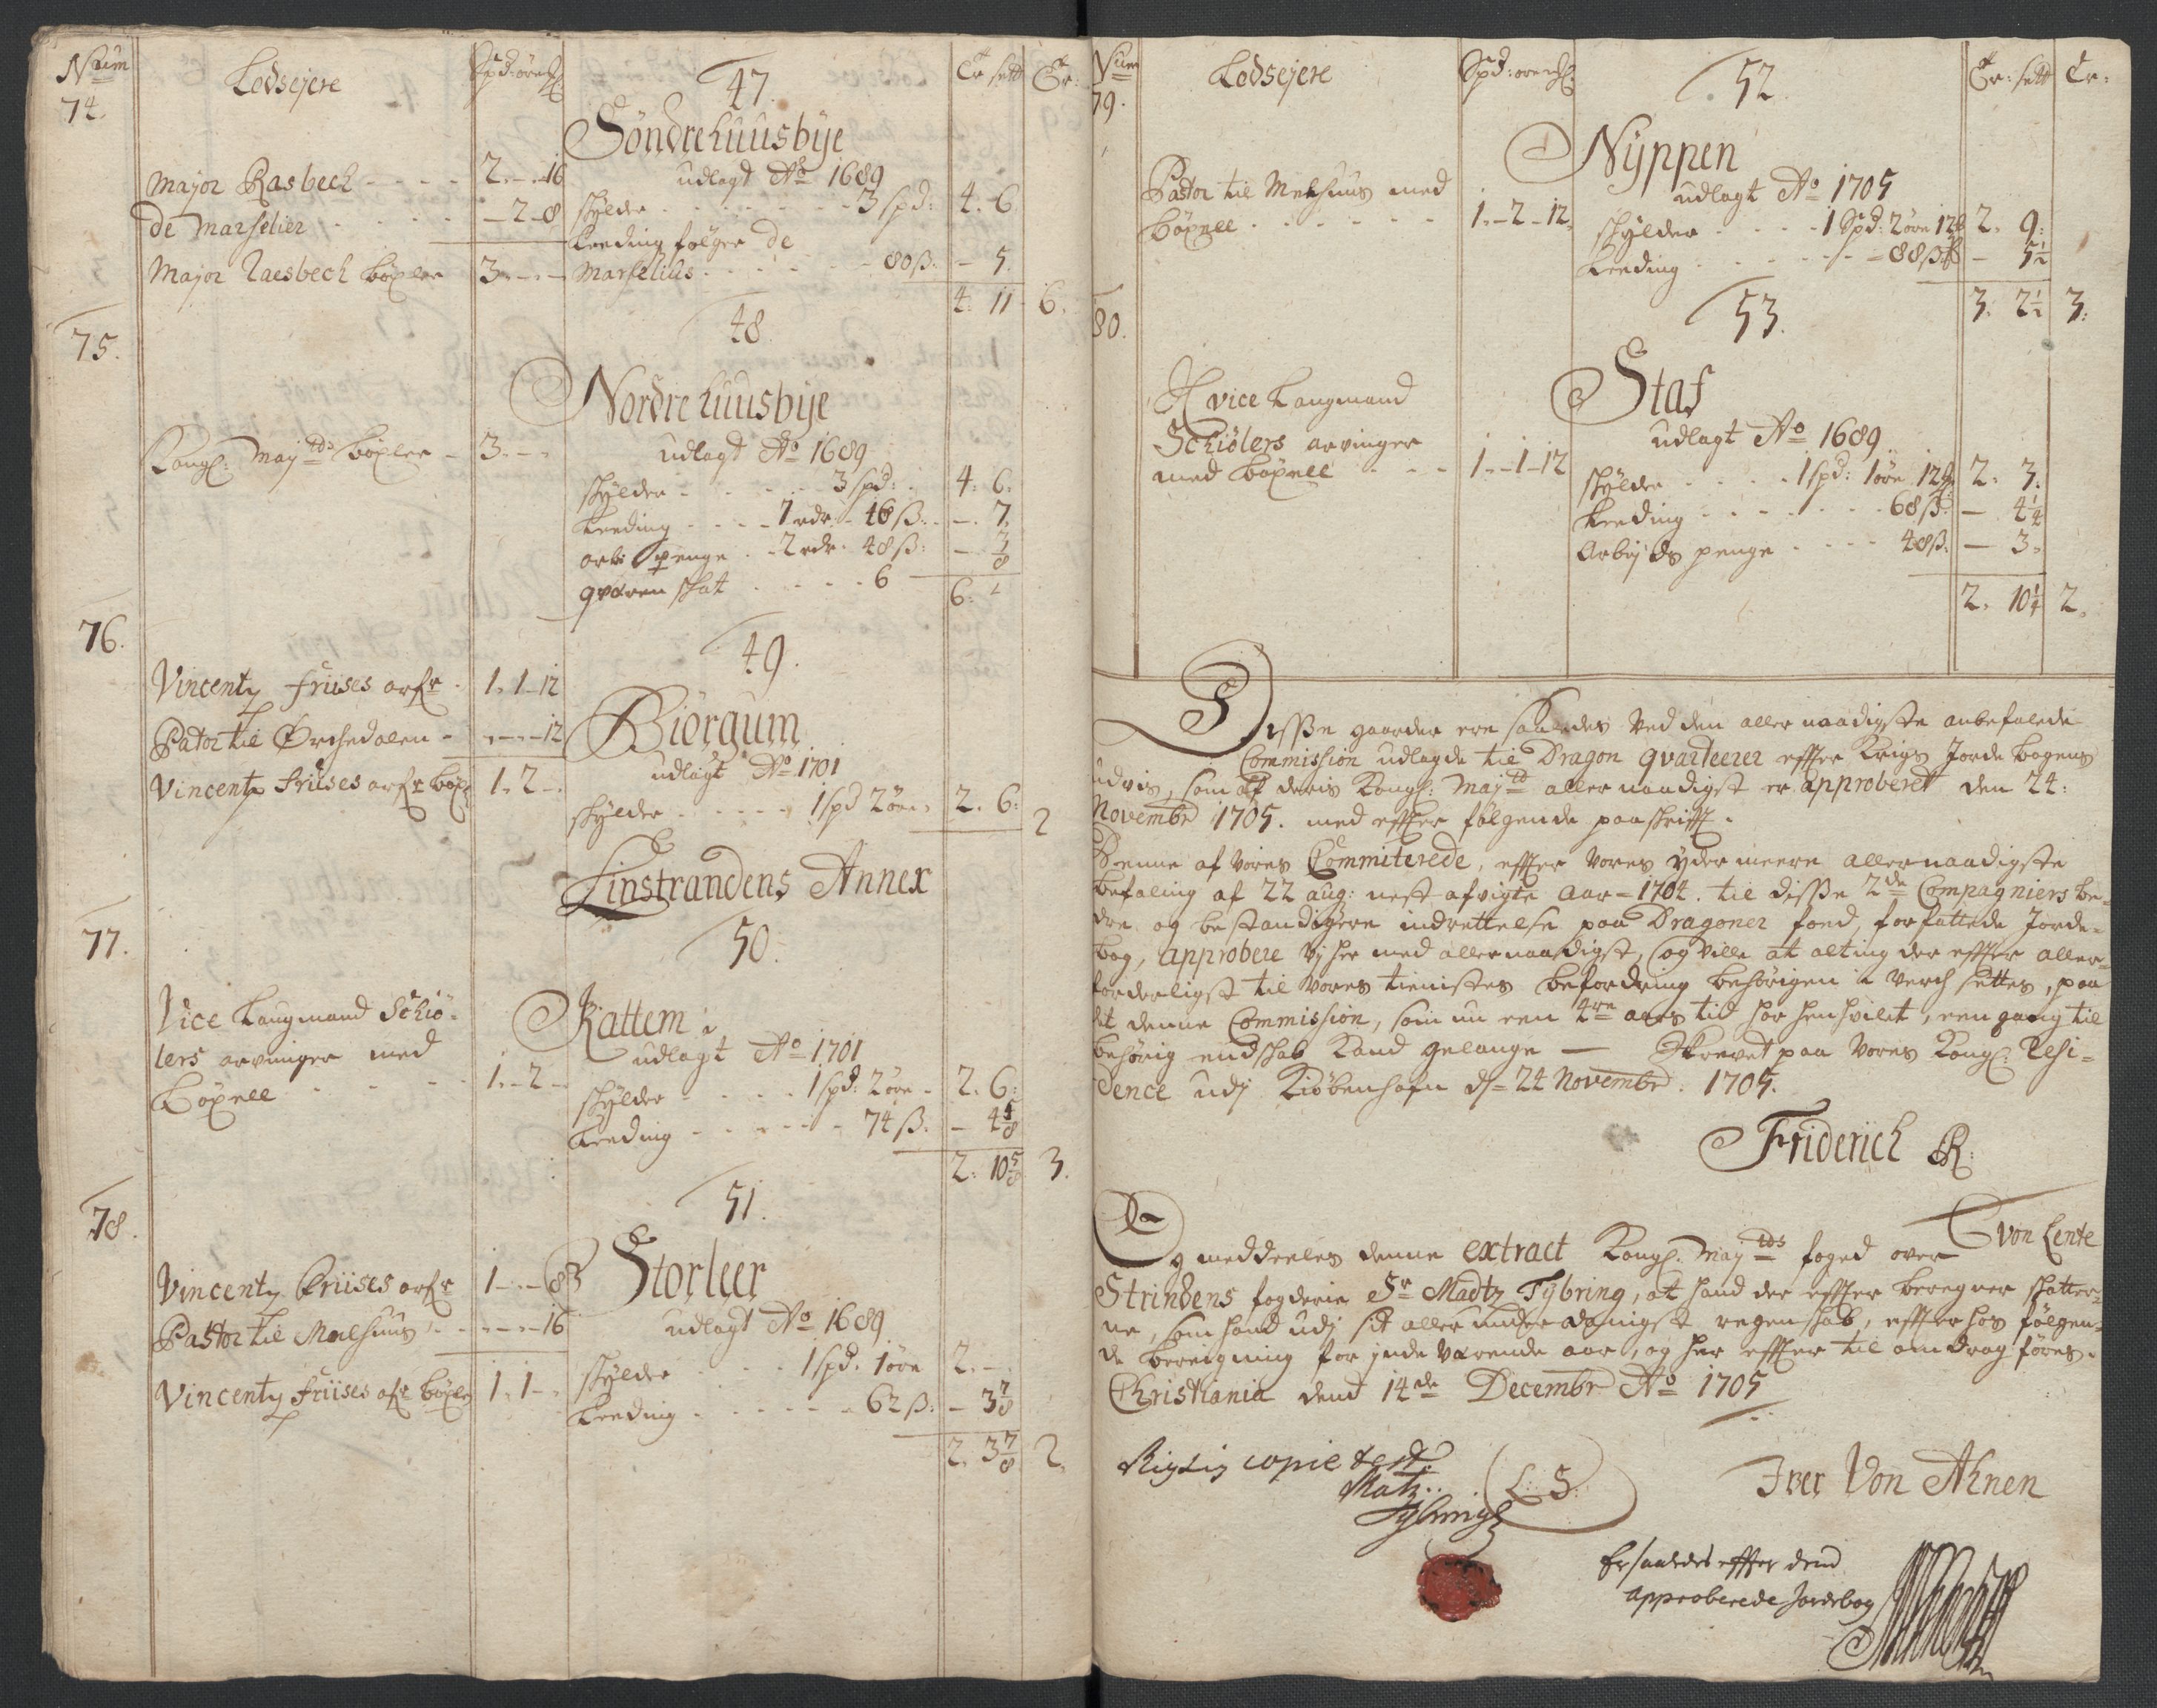 Num
Lodsejere
Spd: øre
Er sett
Er:
74.
47.
Søndrehuusbÿe
udlagt Ao 1689
Major Rasbech - - - - 2. - . 16
skylder - - - - - 3 spd: 4. 6
de Marselier - - - - 2 - 8
Leeding følger de
Major Raesbech böxler 3. - . -
Marselius - - - - 80 ß. - 5.
4. 11 6.
75.
48.
Nordre huusbÿe
udlagt Ao 1689
Kongl: Maytds böxler - 3. - -
skylder - - - - 3 spd: 4. 6.
Leeding - - - 1 rdr. - 16 ß. - 7.
arb: penge - 2 rdr. 48 ß:
qværn skat - - - - 6
6.
76.
49.
Biörgum
udlagt Ao 1701
Vincentz Friises arfr - 1. 1 - 12
Pator til Ørchedalen - - . - - 12
Vincentz Friises arfr böxl 1. 2 - .
skylder - - - - 1 spd 2 øre. 2. 6. 2
Linstrandens Annex
77.
50.
Rattem
udlagt Ao 1701
Vice Laugmand Schiö-
lers arvinger med
Böxell - - - - 1. - 2 -
skylder - - - - 1 spd: 2 øre - 2. 6:
Leeding - - - - - 74 ß: - 4 5/8
2. 10 5/8 3.
78.
51.
Storleer
udlagt Ao 1689
Vincentz Friises arfr 1 - . - 8
Pastor til Melhuus - - - . - 16
Vincentz Friises afr böxler 1. 1 - .
skylder - - - 1 spd. 1 øre 2. -
Leeding - - - - - 62 ß: - 3 7/8
2. 3 7/8 2.
Num
Lodsejere
Spd: øre
Er: sett
Er:
79.
52.
Nÿppen
udlagt Ao 1705
Pastor til Melhuus med
böxell - - - - - 1. - 2 - 12.
skylder - - - - 1 Spd: 2 øre 12 2. 9:
Leeding - - - - - 88 ß - 5 1/2
3. 2 1/2 3:
80.
53.
Staf
udlagt Ao 1689
vice Laugmand
Schiölers arvinger
med böxell - - - 1. - 1 - 12
skylder - - - - 1 spd: 1 øre 12 2. 3.
Leeding - - - - - - 68 ß: - 4 1/4
Arbejds penge - - - - 48 ß. - 3.
2. 10 1/4 2.
Disse gaarder ere saaledes ved den aller naadigste anbefalede
Commission udlagde til Dragon qvarteerer effter Krigs Jorde bogens
udvis, som af deris Kongl: Maytt aller naadigst er approberet den 24:
Novembr 1705. med effter følgende paaskrifft.
Denne af vores Committerede, effter vores ÿdermeere allernaadigste
befaling af 22 aug: nest afvigte aar = 1704. til disse 2de Compagniers be-
dre og bestandigere indrettelse paa Dragoner foed, forfattede Jorde-
bog, approbere vj her med allernaadigst, og ville at alting der effter aller-
forderligst til vores tienistes befordring behörigen i verch settes, paa
det denne Commission, som nu een 4re aars tid har henhvilet, een gang til
behörig endskab kand gelange — Skrevet paa vores Kongl: Resi-
dence udj Kiöbenhafn d. 24 Novembr. 1705.
Friderich R:
von Lente
Og meddeeles denne extract Kongl: Maytds foged over
Strindens fogderie Sr Madtz Tÿbring, at hand der effter beregner skatter-
ne, som hand udj sit allerunderdanigst regenskab, effter hos følgen-
de beregning for inde værende aar, og her effter til omdrag føres.
Christiania dend 14de Decembr Ao 1705
Rigtig copie test.
Matz..
Tybring
L: S:
Iver Von Ahnen
Er saaledes effter dend
approberede Jordebog